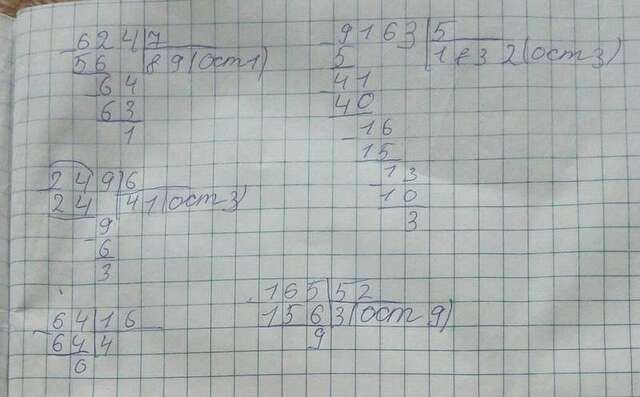 624 7
56 89 (ост 1)
64
63
1
9163 5
5 1832 (ост 3)
41
40
16
15
13
10
3
249 6
24 41 (ост 3)
9
6
3
64 16
64 4
0
165 52
156 3 (ост 9)
9